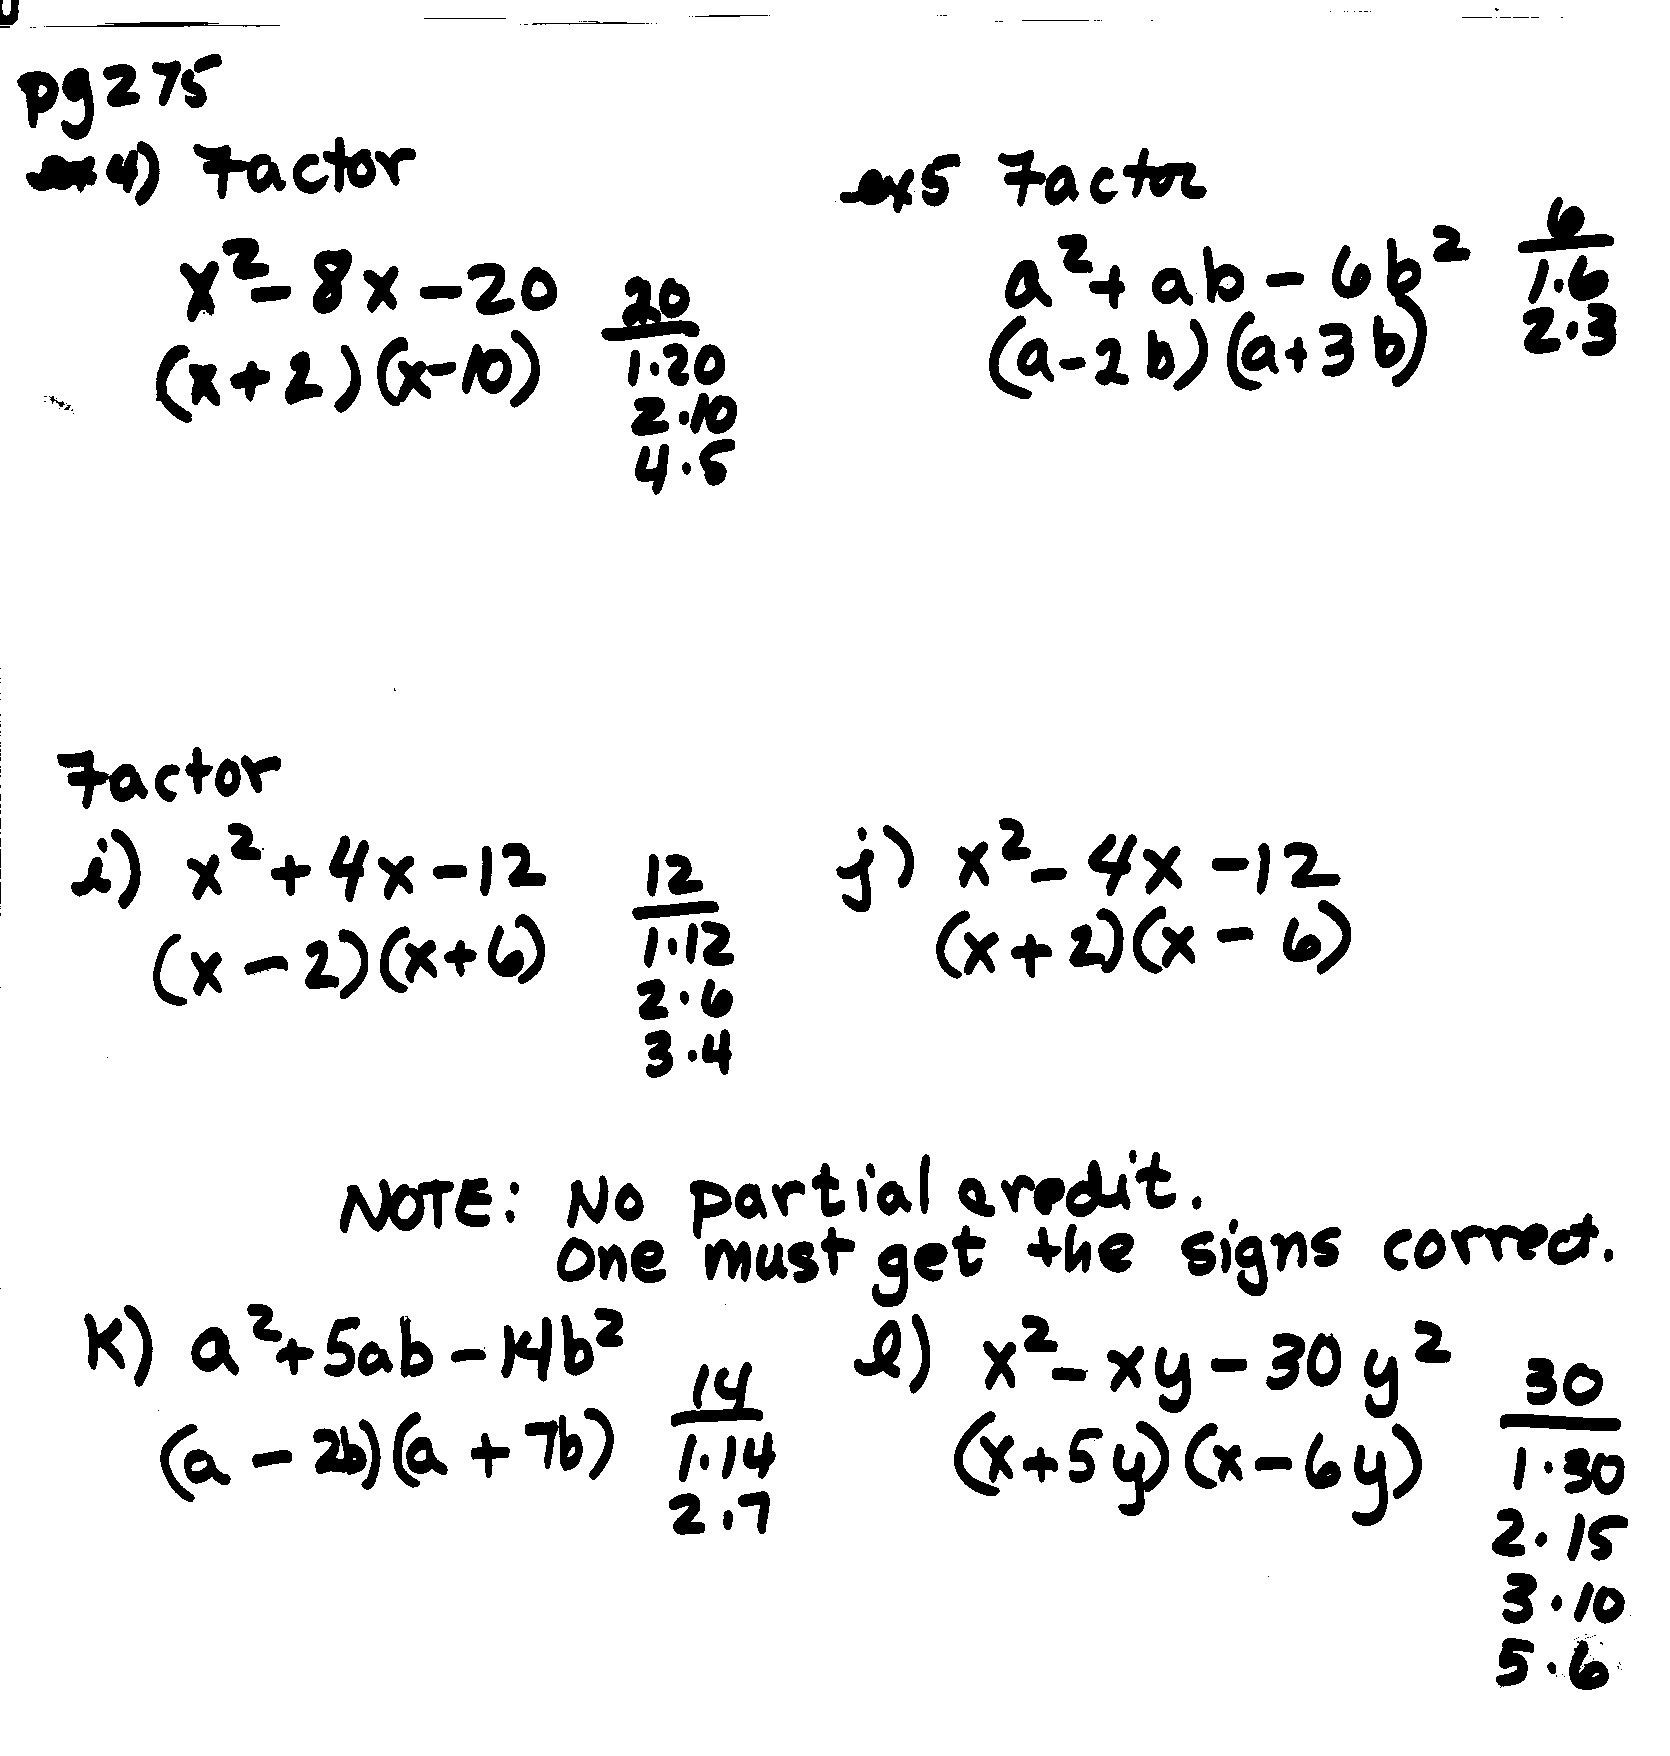 pg 275
ex 4) Factor
x² - 8x - 20
(x + 2)(x - 10)
20
1·20
2·10
4·5
ex 5 Factor
a² + ab - 6b²
(a - 2b)(a + 3b)
6
1·6
2·3
Factor
i) x² + 4x - 12
(x - 2)(x + 6)
12
1·12
2·6
3·4
j) x² - 4x - 12
(x + 2)(x - 6)
NOTE: No partial credit.
One must get the signs correct.
k) a² + 5ab - 14b²
(a - 2b)(a + 7b)
14
1·14
2·7
l) x² - xy - 30y²
(x + 5y)(x - 6y)
30
1·30
2·15
3·10
5·6